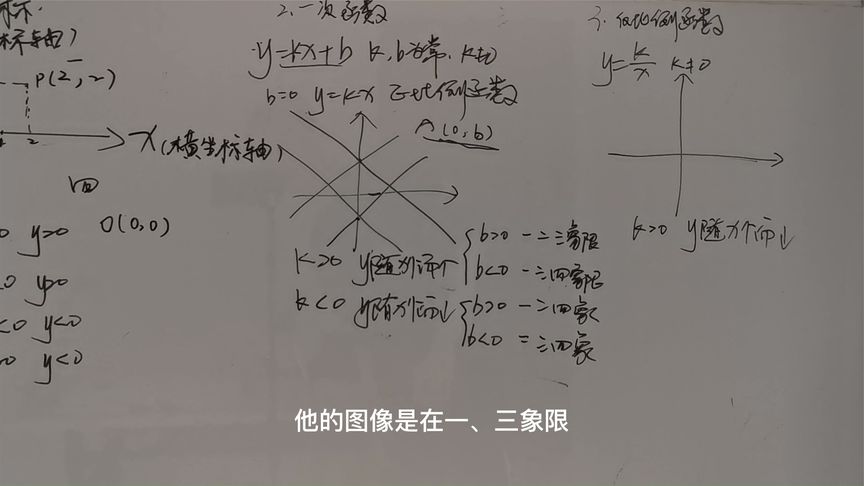 标轴)
P(2, 2)
2
x(横坐标轴)
四
y>0 O(0,0)
0 y>0
<0 y<0
>0 y<0
2、一次函数
y=kx+b k,b为常, k≠0
b=0 y=kx 正比例函数
A(0,b)
k>0 y随x↑而↑
b>0 一二三象限
b<0 一三四象限
k<0 y随x↑而↓
b>0 一二四象
b<0 二三四象
3、反比例函数
y=k/x k≠0
k>0 y随x个而↓
他的图像是在一、三象限